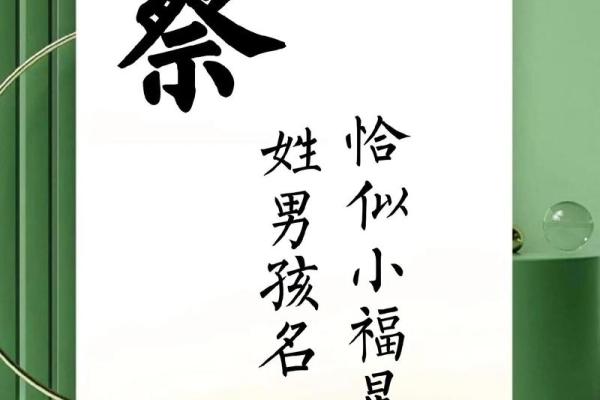 蔡
恰似小福星
姓男孩名